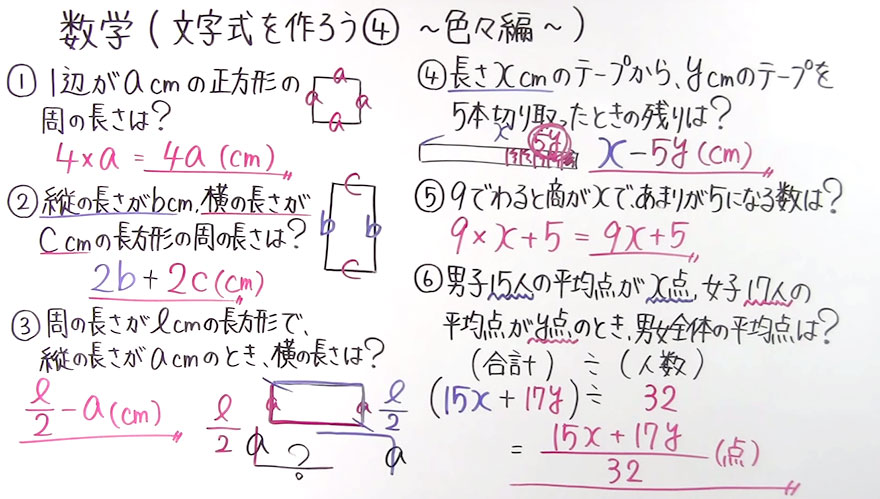 数学(文字式を作ろう④ ~色々編~)
① 1辺がacmの正方形の
周の長さは?
a
a
a
a
4×a = 4a (cm)
② 縦の長さがbcm,横の長さが
Ccmの長方形の周の長さは?
c
b
b
c
2b+2c(cm)
③ 周の長さがℓcmの長方形で、
縦の長さがacmのとき、横の長さは?
ℓ/2 - a(cm)
ℓ/2
a
a
ℓ/2
a
?
a
④ 長さxcmのテープから、ycmのテープを
5本切り取ったときの残りは?
x
5y
x-5y(cm)
⑤ 9でわると商がxで、あまりが5になる数は?
9×x+5 = 9x+5
⑥ 男子15人の平均点がx点,女子17人の
平均点がy点のとき、男女全体の平均点は?
(合計) ÷ (人数)
(15x+17y) ÷ 32
= (15x+17y)/32 (点)